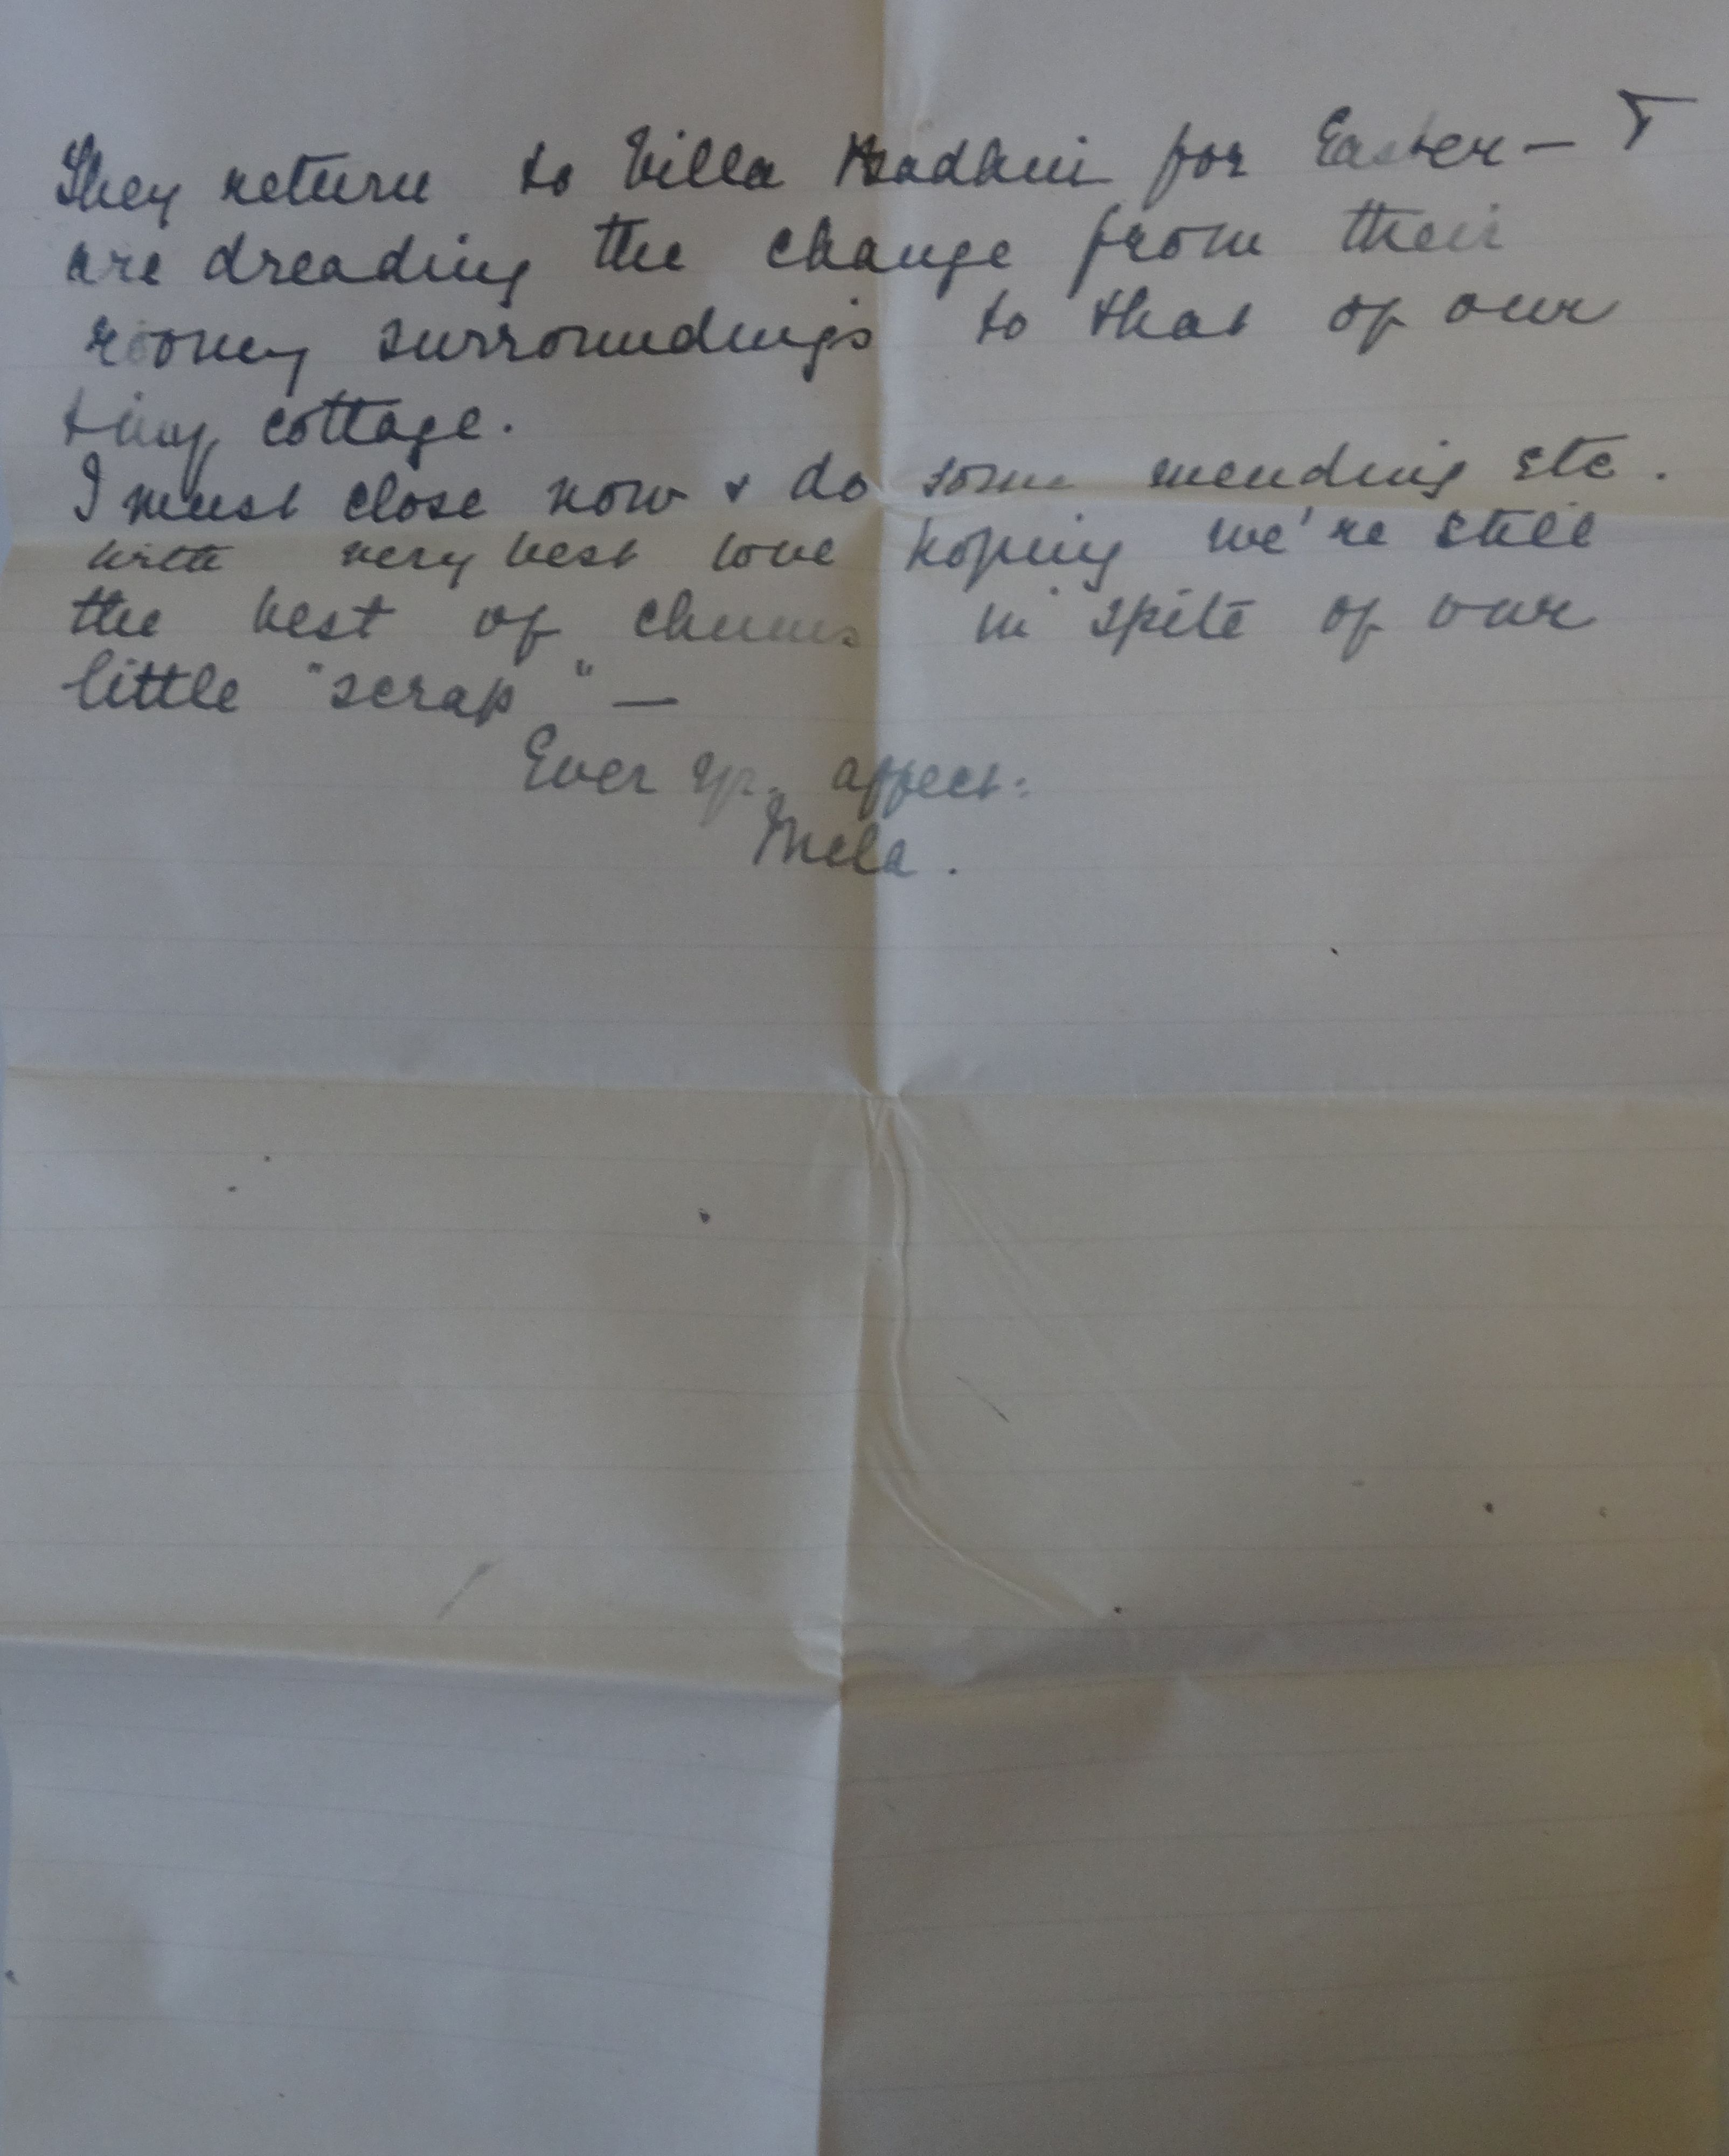 They return to Villa for Easter —
are dreading the change from their
roomy surroundings to that of our
tiny cottage.
I must close now & do some mending etc.
with very best love hoping we're still
the best of chums in spite of our
little "scrap" —
Ever yr. affect:
Mela.